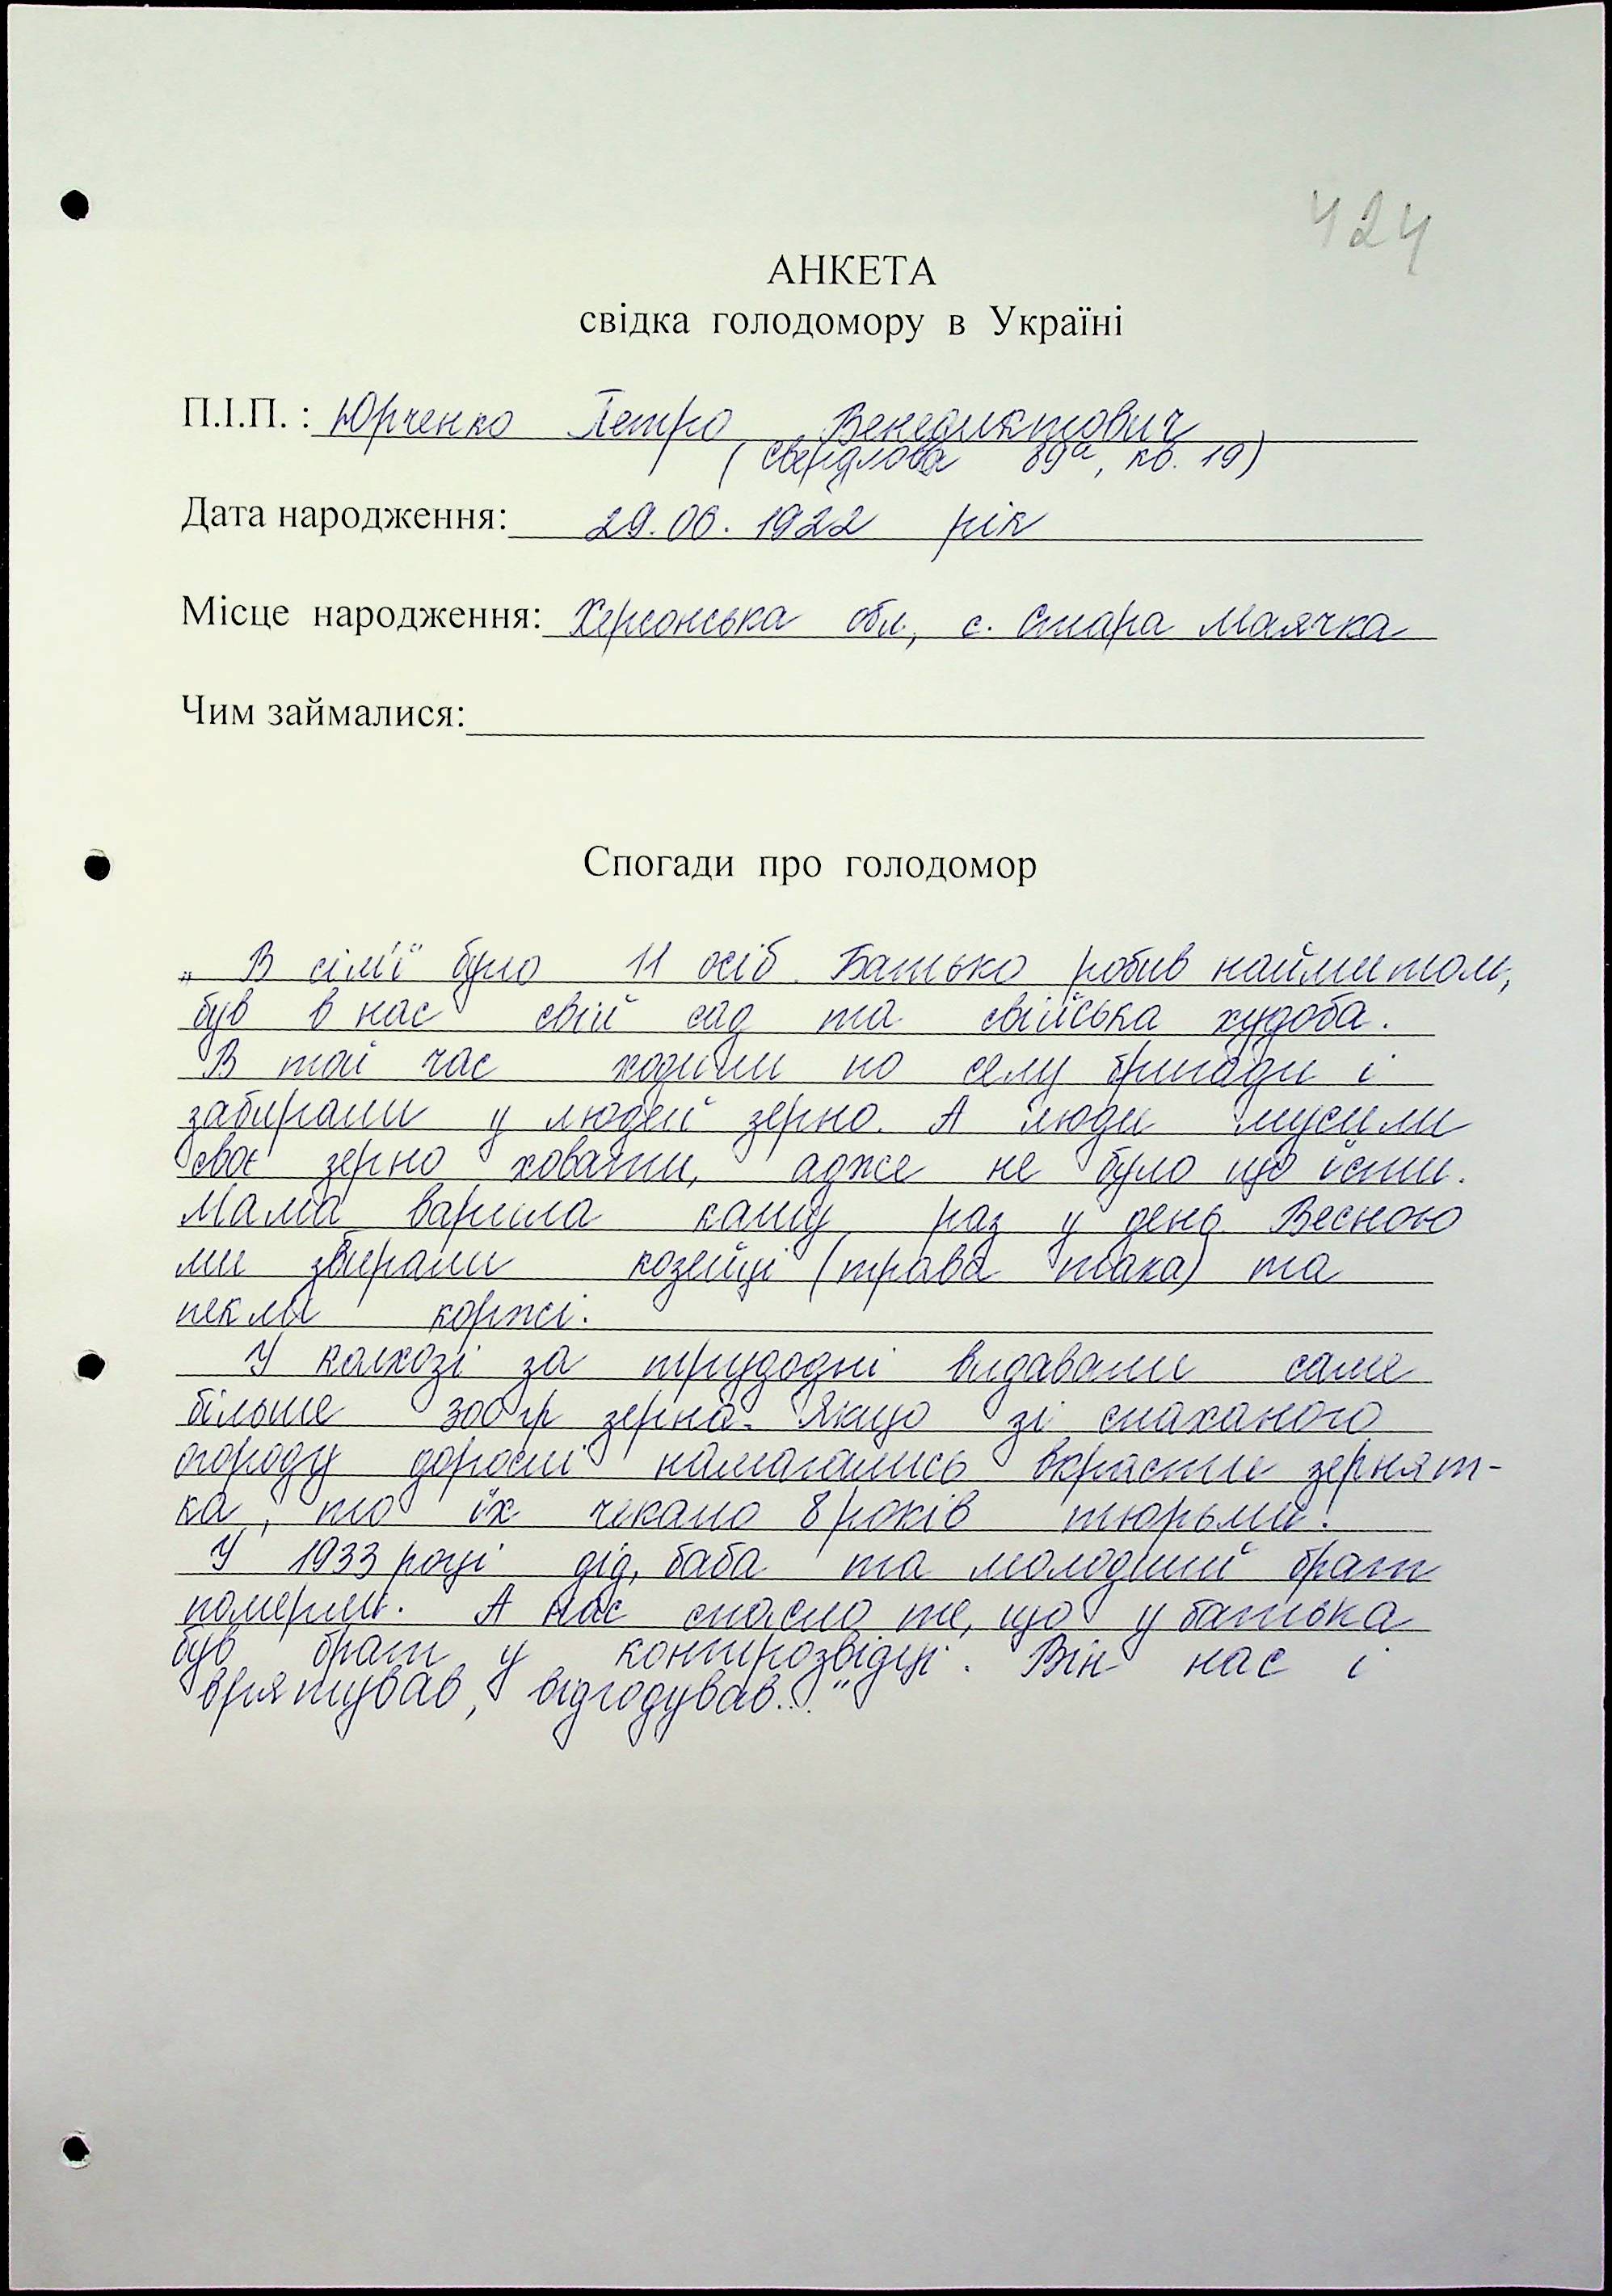 424
АНКЕТА
свідка голодомору в Україні
П.І.П. : Юрченко Петро Венедиктович
(Свердлова 89а, кв. 19)
Дата народження: 29.06.1922 рік
Місце народження: Херсонська обл, с. Стара Маячка
Чим займалися:
Спогади про голодомор
„ В сім'ї було 11 осіб. Батько робив наймитом,
був в нас свій сад та свійська худоба.
В той час ходили по селу бригади і
забирали у людей зерно. А люди мусили
своє зерно ховати, адже не було що їсти.
Мама варила кашу раз у день. Весною
ми збирали козельці (трава така) та
пекли коржі.
У колхозі за трудодні видавали саме
більше 300 гр зерна. Якщо зі спаханого
огороду дорослі намагались вкрасти зернят-
ка, то їх чекало 8 років тюрьми!
У 1933 році дід, баба та молодший брат
померли. А нас спасло те, що у батька
був брат у контрозвідці. Він нас і
врятував, відгодував..."